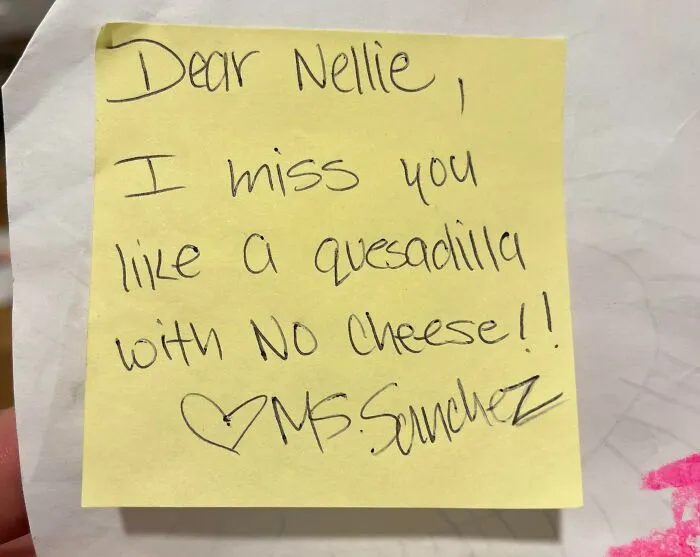 Dear Nellie,
I miss you
like a quesadilla
with NO cheese!!
♡ Ms. Sanchez